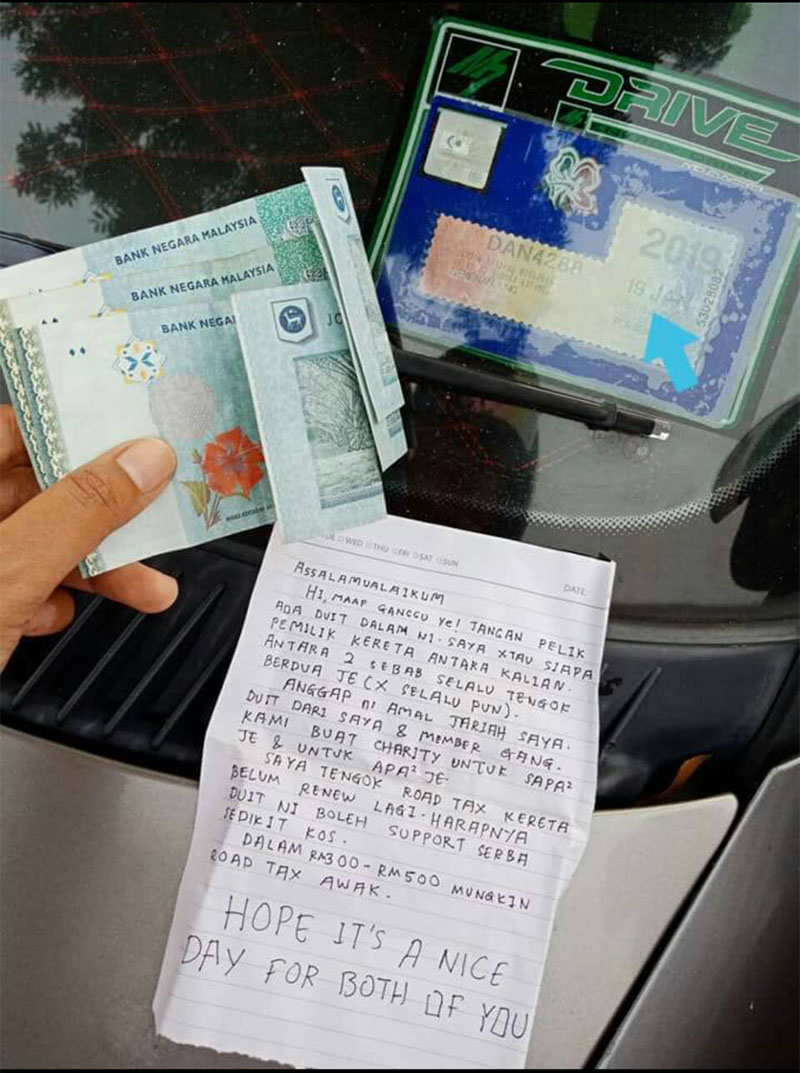 DRIVE
BANK NEGARA MALAYSIA
BANK NEGARA MALAYSIA
BANK NEGA
DAN4288
2019
19 JAN
WED THU FRI SAT SUN
DATE
ASSALAMUALAIKUM
HI, MAAF GANGGU YE! JANGAN PELIK
ADA DUIT DALAM NI. SAYA XTAU SIAPA
PEMILIK KERETA ANTARA KALIAN.
ANTARA 2 SEBAB SELALU TENGOK
BERDUA JE (X SELALU PUN).
ANGGAP NI AMAL JARIAH SAYA.
DUIT DARI SAYA & MEMBER GANG.
KAMI BUAT CHARITY UNTUK SAPA²
JE & UNTUK APA² JE
SAYA TENGOK ROAD TAX KERETA
BELUM RENEW LAGI. HARAPNYA
DUIT NI BOLEH SUPPORT SERBA
SEDIKIT KOS.
DALAM RM300 - RM500 MUNGKIN
ROAD TAX AWAK.
HOPE IT'S A NICE
DAY FOR BOTH OF YOU